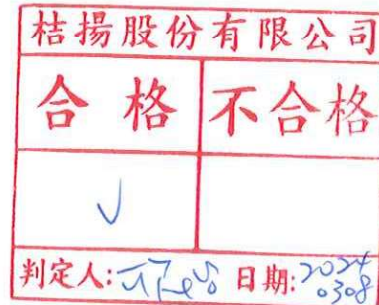 桔揚股份有限公司
合格 不合格
✓
判定人: 日期:2024
0308